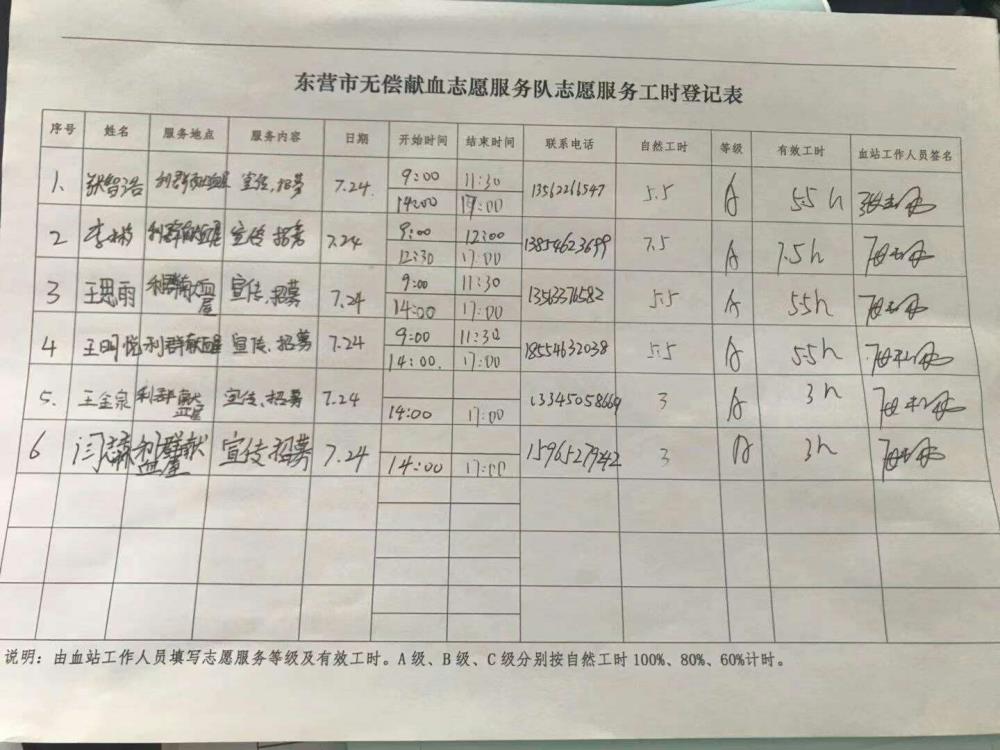 东营市无偿献血志愿服务队志愿服务工时登记表
序号 姓名 服务地点 服务内容 日期 开始时间 结束时间 联系电话 自然工时 等级 有效工时 血站工作人员签名
1. 张智浩 利群献血屋 宣传、招募 7.24. 9:00 11:30 13562266547 5.5 A 5.5h
14:00 17:00
2 李梅 利群献血屋 宣传 招募 7.24 9:00 12:00 13854623699 7.5 A 7.5h
12:30 17:00
3 王思雨 利群献血屋 宣传、招募 7.24 9:00 11:30 13563376582 5.5 A 5.5h
14:00 17:00
4 王明悦 利群献血屋 宣传、招募 7.24 9:00 11:30 18554632038 5.5 A 5.5h
14:00. 17:00
5. 王金泉 利群献血屋 宣传、招募 7.24 14:00 17:00 13345058669 3 A 3h
6 利群献血屋 宣传招募 7.24 14:00 17:00 15965279242 3 A 3h
说明：由血站工作人员填写志愿服务等级及有效工时。A级、B级、C级分别按自然工时100%、80%、60%计时。